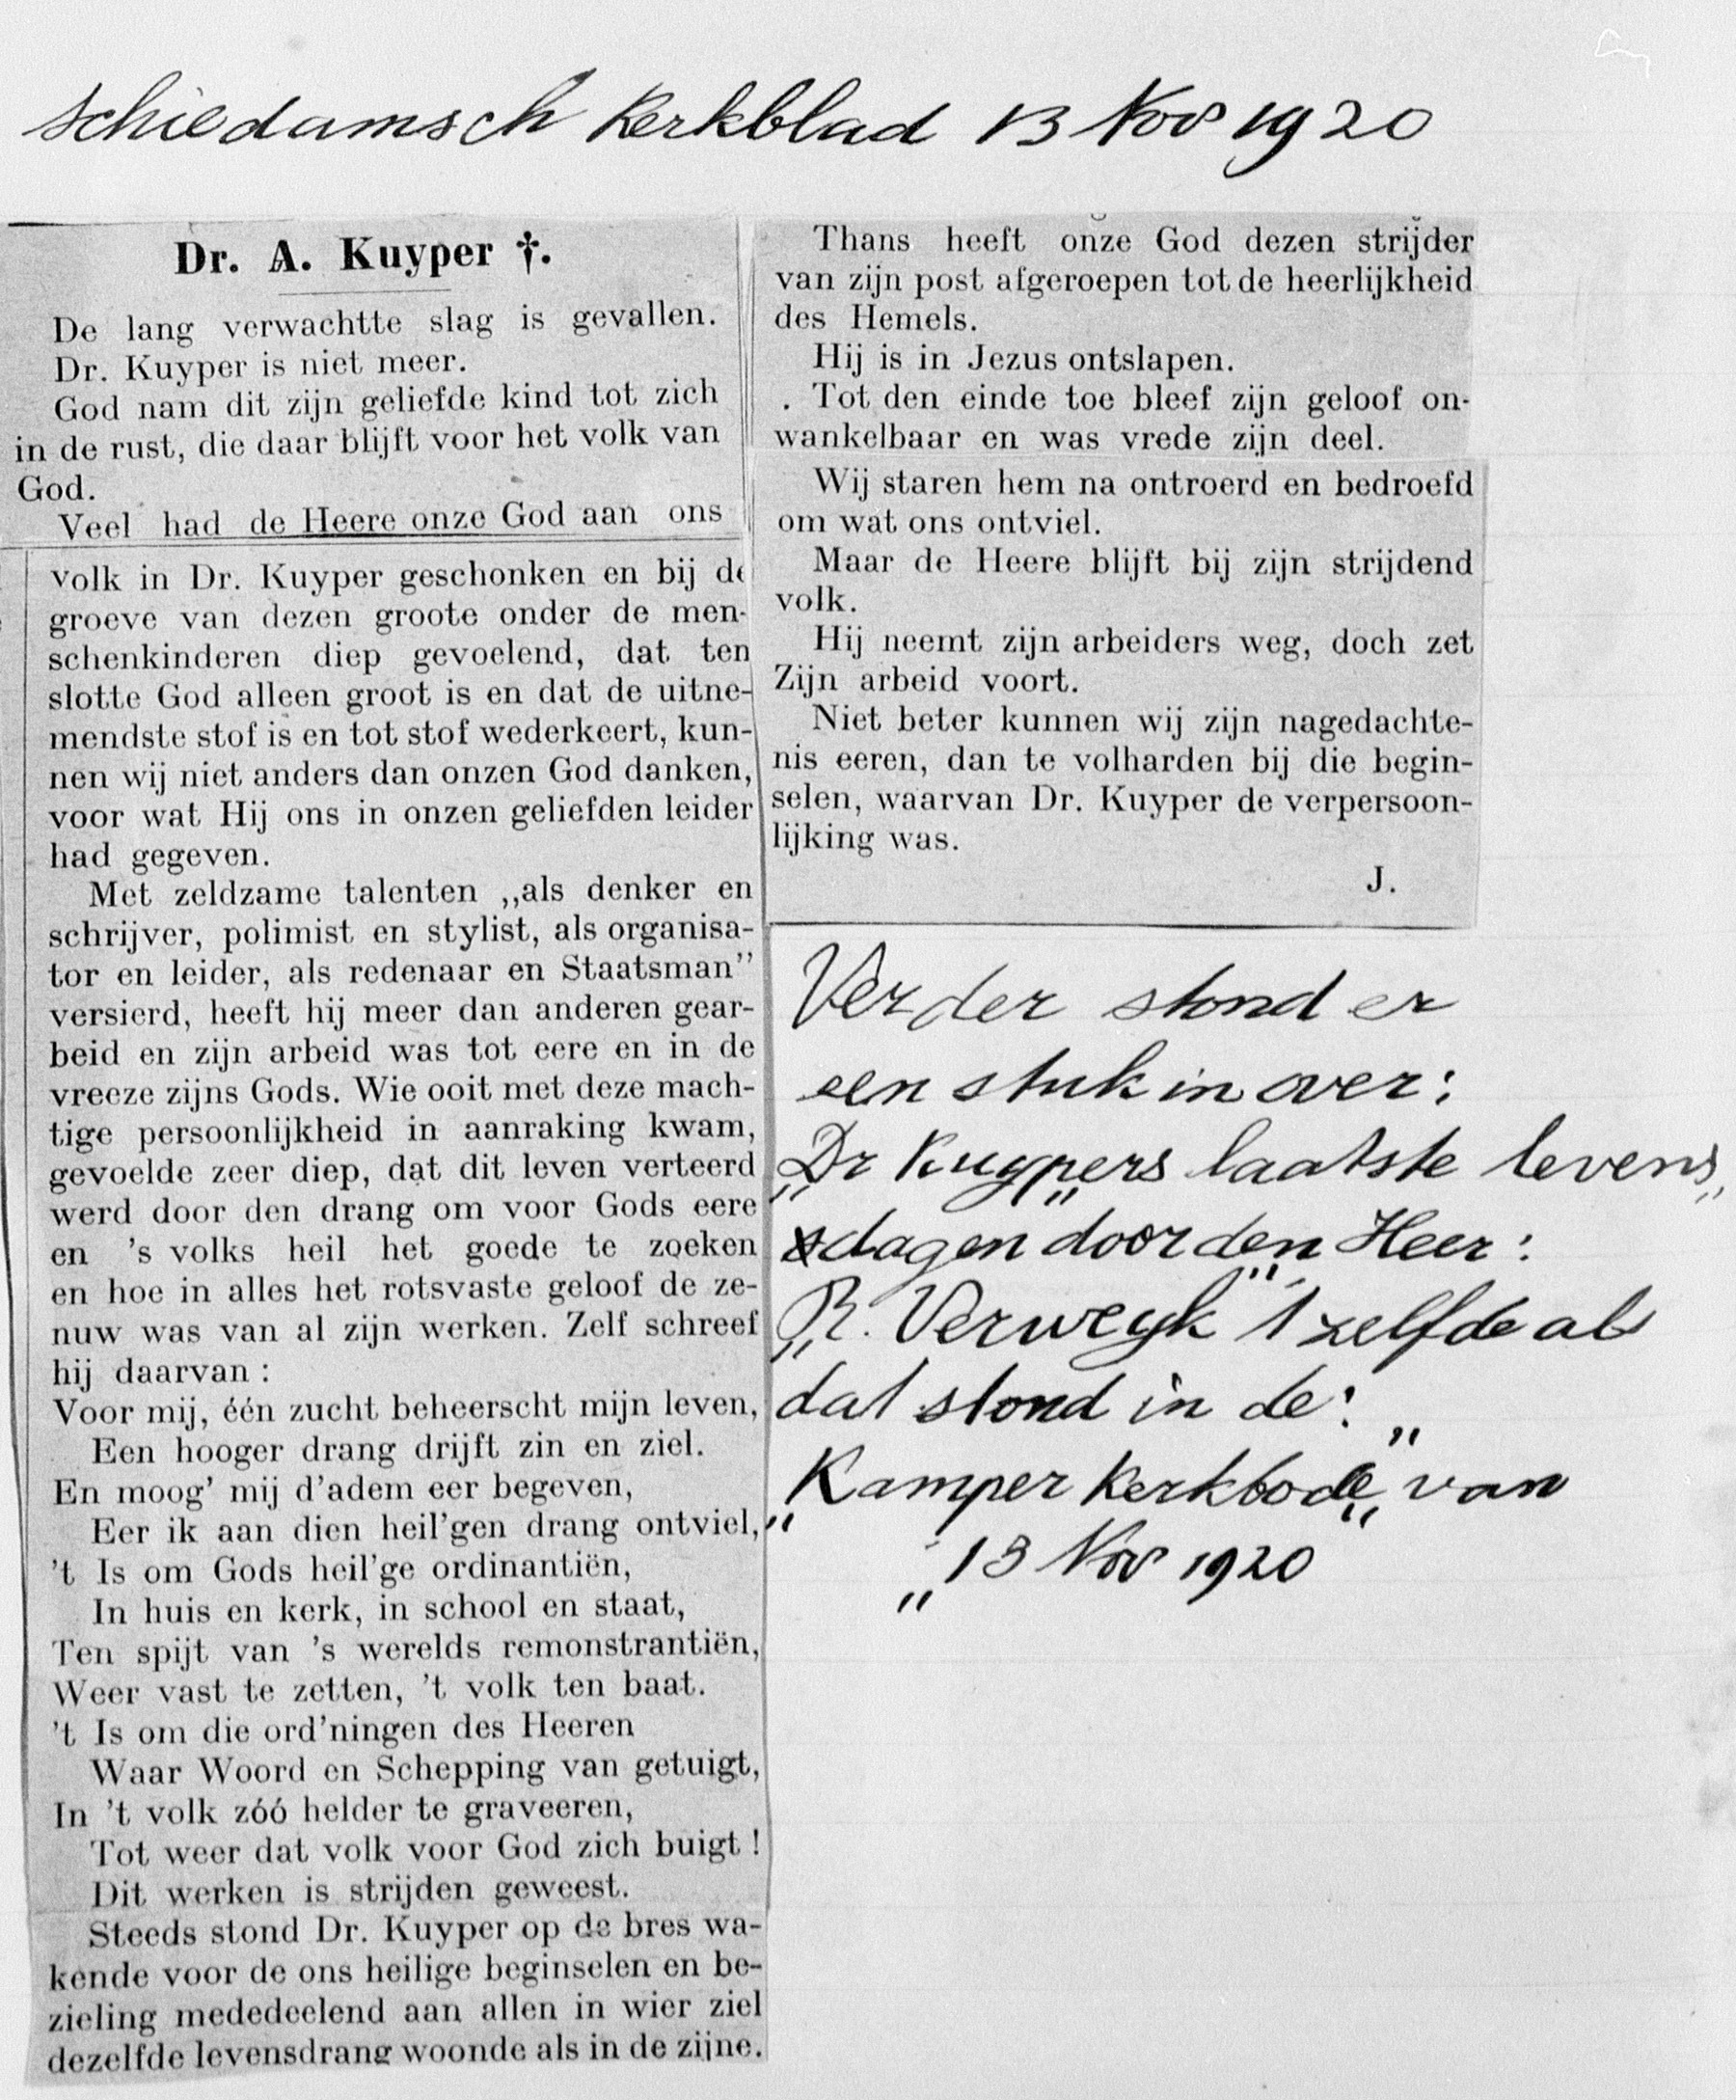 Schiedamsch Kerkblad 13 Nov 1920
Dr. A. Kuyper †.
De lang verwachtte slag is gevallen.
Dr. Kuyper is niet meer.
God nam dit zijn geliefde kind tot zich
in de rust, die daar blijft voor het volk van
God.
Veel had de Heere onze God aan ons
volk in Dr. Kuyper geschonken en bij de
groeve van dezen groote onder de men-
schenkinderen diep gevoelend, dat ten
slotte God alleen groot is en dat de uitne-
mendste stof is en tot stof wederkeert, kun-
nen wij niet anders dan onzen God danken,
voor wat Hij ons in onzen geliefden leider
had gegeven.
Met zeldzame talenten ,,als denker en
schrijver, polimist en stylist, als organisa-
tor en leider, als redenaar en Staatsman”
versierd, heeft hij meer dan anderen gear-
beid en zijn arbeid was tot eere en in de
vreeze zijns Gods. Wie ooit met deze mach-
tige persoonlijkheid in aanraking kwam,
gevoelde zeer diep, dat dit leven verteerd
werd door den drang om voor Gods eere
en 's volks heil het goede te zoeken
en hoe in alles het rotsvaste geloof de ze-
nuw was van al zijn werken. Zelf schreef
hij daarvan :
Voor mij, één zucht beheerscht mijn leven,
Een hooger drang drijft zin en ziel.
En moog' mij d'adem eer begeven,
Eer ik aan dien heil'gen drang ontviel,
't Is om Gods heil'ge ordinantiën,
In huis en kerk, in school en staat,
Ten spijt van 's werelds remonstrantiën,
Weer vast te zetten, 't volk ten baat.
't Is om die ord'ningen des Heeren
Waar Woord en Schepping van getuigt,
In 't volk zóó helder te graveeren,
Tot weer dat volk voor God zich buigt !
Dit werken is strijden geweest.
Steeds stond Dr. Kuyper op de bres wa-
kende voor de ons heilige beginselen en be-
zieling mededeelend aan allen in wier ziel
dezelfde levensdrang woonde als in de zijne.
Thans heeft onze God dezen strijder
van zijn post afgeroepen tot de heerlijkheid
des Hemels.
Hij is in Jezus ontslapen.
. Tot den einde toe bleef zijn geloof on-
wankelbaar en was vrede zijn deel.
Wij staren hem na ontroerd en bedroefd
om wat ons ontviel.
Maar de Heere blijft bij zijn strijdend
volk.
Hij neemt zijn arbeiders weg, doch zet
Zijn arbeid voort.
Niet beter kunnen wij zijn nagedachte-
nis eeren, dan te volharden bij die begin-
selen, waarvan Dr. Kuyper de verpersoon-
lijking was.
J.
Verder stond er
een stuk in over:
„Dr Kuypers laatste levens„
dagen door den Heer :
„R. Verweyk 't zelfde als
dat stond in de: „
„Kamper Kerkbode„ van
„13 Nov 1920